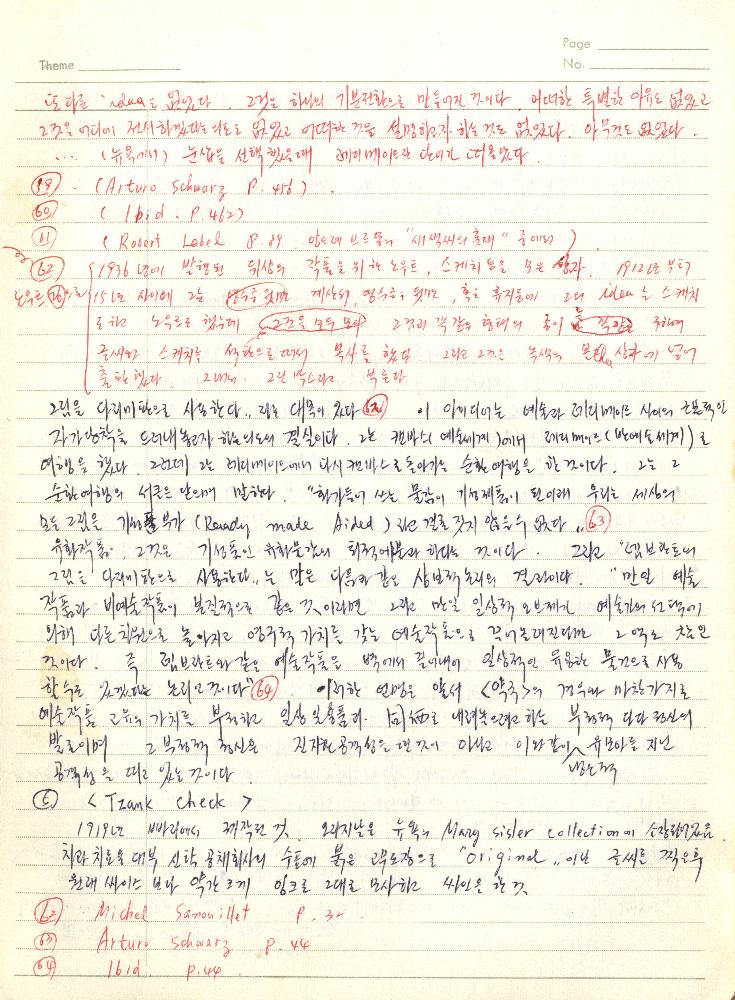 Page
Theme
No.
또 다른 idea는 없었다. 그것은 하나의 기분전환으로 만들어진 것이다. 어떠한 특별한 이유도 없었고
그것을 어디에 전시하겠다는 의도도 없었고 어떠한 것을 설명하고자 하는 것도 없었다. 아무것도 없었다.
... (뉴욕에서) 눈삽을 선택했을때 레디메이드란 단어가 떠올랐다.
59 (Arturo Schwarz P. 456)
60 (Ibid. P. 462)
61 (Robert Lebel P. 89. 앙드레 브르똥의 "새색씨의 등대" 중에서)
62 1936년에 발행된 뒤샹의 작품을 위한 노우트, 스케치 등을 모은 상자. 1912년부터
노우트 26으로 15년 사이에 그는 계산서, 영수증의 뒷면, 혹은 휴지등에 그의 idea를 스케치
도하고 노우트도 했는데 그것을 모두 모아 그것과 꼭 같은 형태의 종이를 구하여
글씨와 스케치를 석판으로 떠서 복사를 했다. 그리고 그것은 녹색의 상자에 넣어
출판했다. 그래서 그린 박스라고 부른다
그림을 다리미판으로 사용한다.. 라는 대목이 있다 62 이 아이디어는 예술과 레디메이드 사이의 근본적인
자가당착을 드러내놓고자 하는 의도의 결실이다. 그는 캔바스(예술세계)에서 레디메이드(반예술세계)로
여행을 했다. 그런데 그는 레디메이드에서 다시 캔바스로 돌아가는 순환여행을 한 것이다. 그는 그
순환여행의 서클을 만드며 말하다. "화가들이 쓰는 물감이 기성제품이 된이래 우리는 세상의
모든 그림을 기성품부가 (Ready made Aided) 라고 결론짓지 않을수 없다.. 63
유화작품, 그것은 기성품인 유화물감의 퇴적에불과하다는 것이다. 그리고 "렘브란트의
그림을 다리미판으로 사용한다..는 말은 다음과 같은 상보적 논리의 결과이다. "만일 예술
작품과 비예술작품이 본질적으로 같은 것이라면 그리고 만일 일상적 오브제가 예술가의 선택에
의해 다른 차원으로 높아지고 영구적 가치를 갖는 예술작품으로 끌어올려진다면 그 역도 참인
것이다. 즉 렘브란트와 같은 예술작품을 벽에서 끌어내어 일상적인 유용한 물건으로 사용
할수도 있겠다는 논리인 것이다" 64. 이러한 언명은 앞서 <약국>의 경우와 마찬가지로
예술작품 고유의 가치를 부정하고 일상 일용품과 同line로 내려놓으려고 하는 부정적 다다 정신의
발로이며 그 부정적 정신은 진지한 공격성을 띤 것이 아니고 이와같이 냉소적 유모아를 지닌
공격성을 띠고 있는 것이다.
⑤ <Tzank Check>
1919년 빠리에서 제작된 것. 오리지날은 뉴욕의 Mary sisler collection에 소장되어있음.
치과 치료용 대부 신탁 공채회사의 수표에 붉은 고무도장으로 "Original.. 이란 글씨를 찍은후
원래 싸이스 보다 약간 크게 잉크로 그대로 모사하고 싸인을 한 것
62 Michel Sanouillet P. 32.
63 Arturo Schwarz P. 44
64 Ibid. P. 44